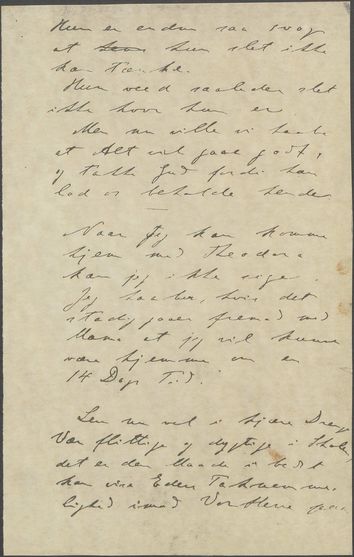 Hun er endnu saa svag
at hun slet ikke
kan tænke.
Hun veed saaledes slet
ikke hvor hun er
Men nu ville vi haabe
at Alt vil gaae godt,
og takke Gud fordi han
lod os beholde hende
Naar jeg kan komme
hjem med Theodora
kan jeg ikke sige.
Jeg haaber, hvis det
stadig gaaer fremad med
Mama at jeg vil kunne
være hjemme om en
14 Dags Tid.
Lev nu vel i kjære Drenge
Vær flittige og dygtige i Skolen,
det er den Maade i bedst
kan vise Eders Taknemme-
lighed imod Vor Herre paa